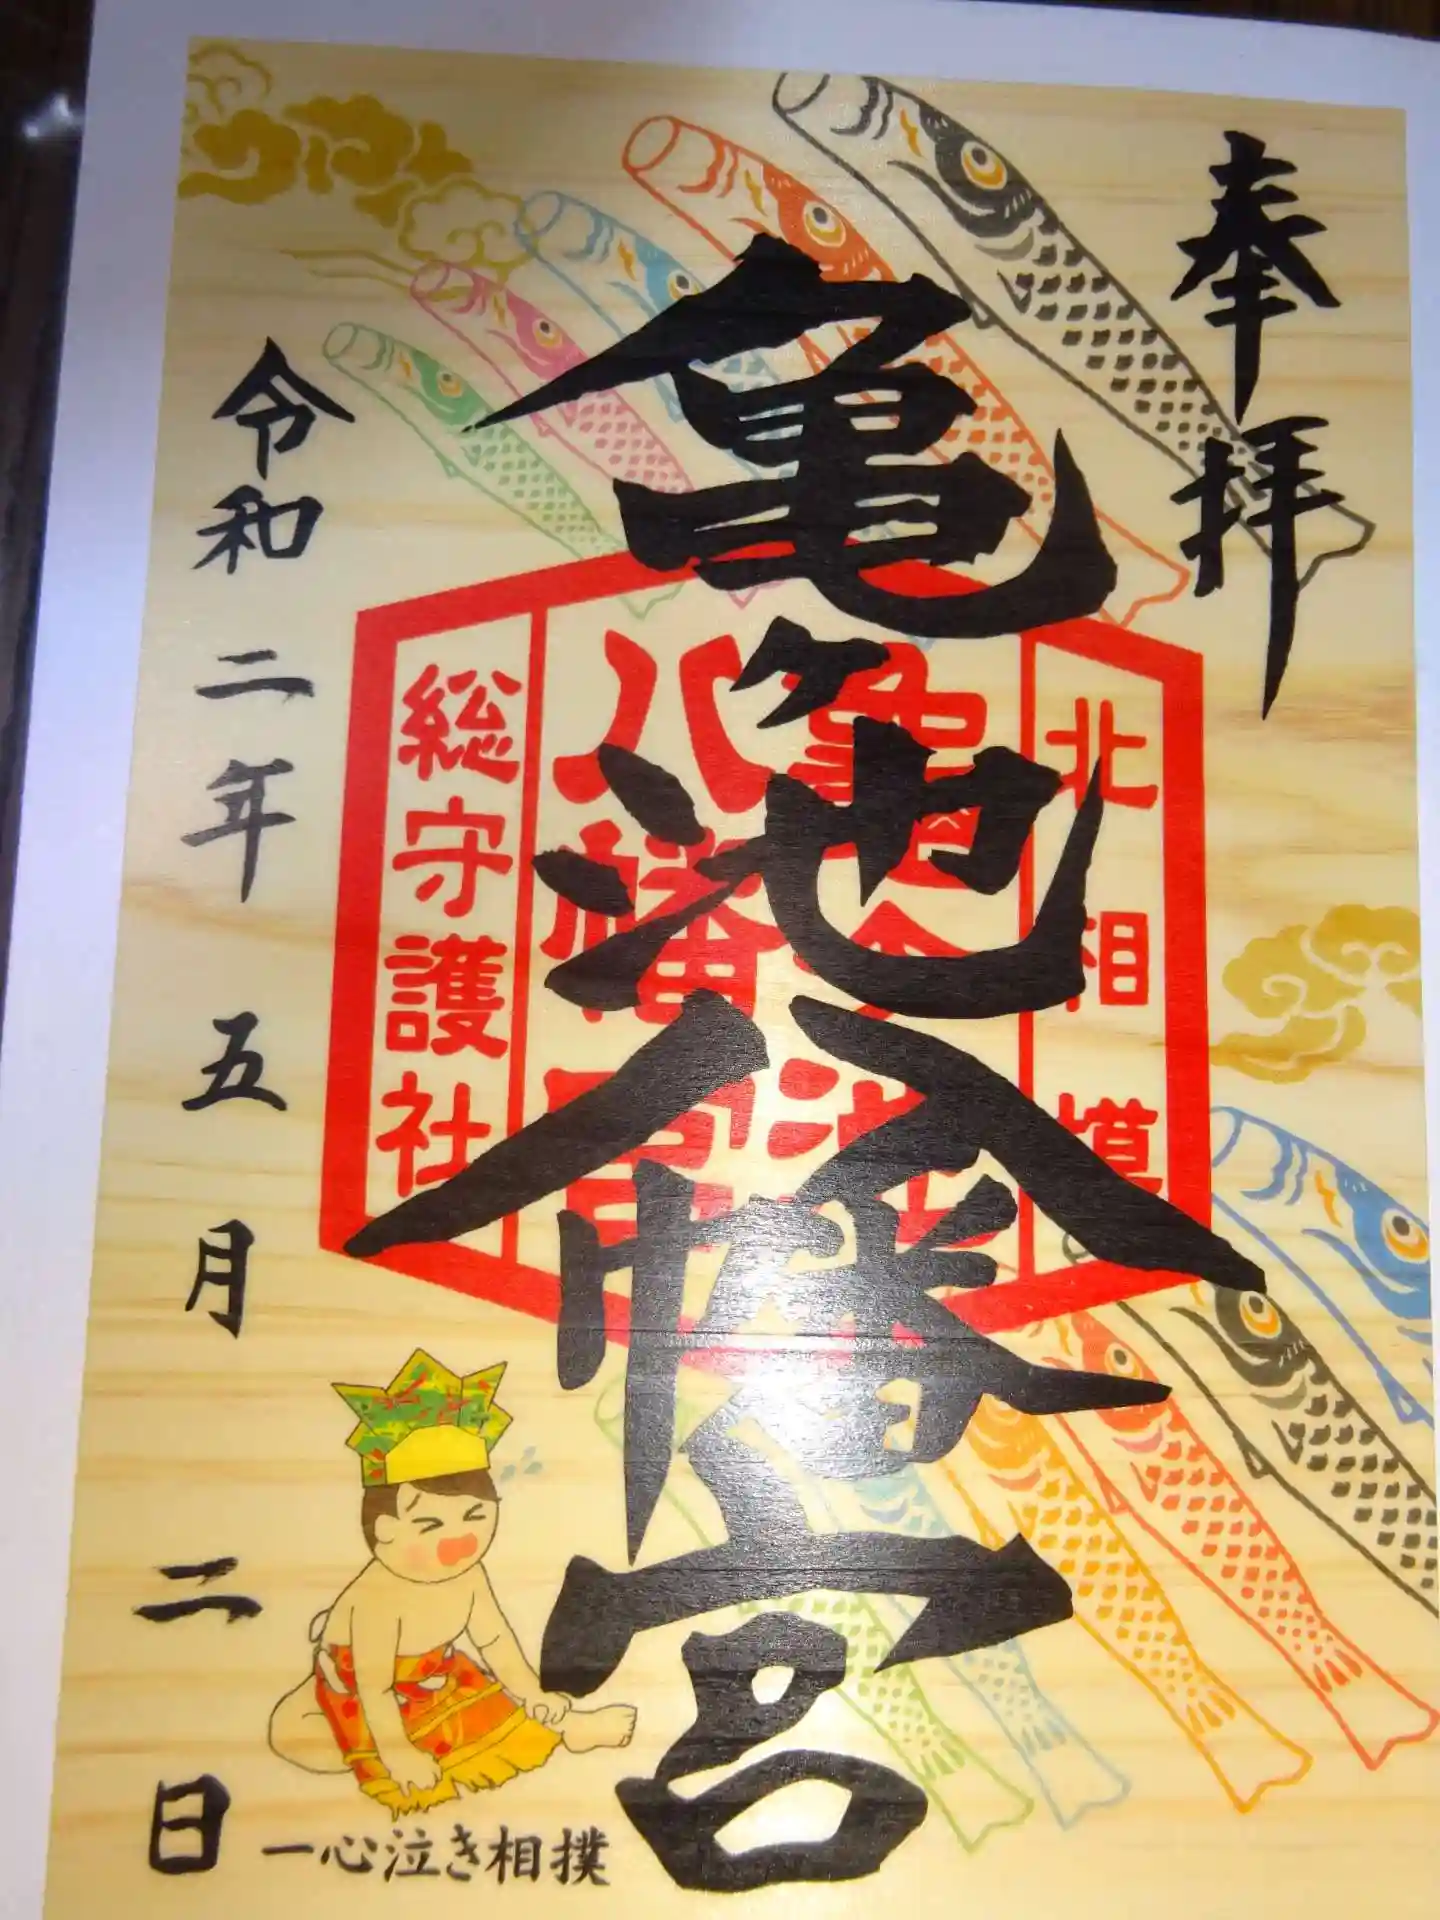 奉拝
亀ヶ池八幡宮
北相模
亀ヶ池
八幡宮
総守護社
令和二年五月二日
一心泣き相撲